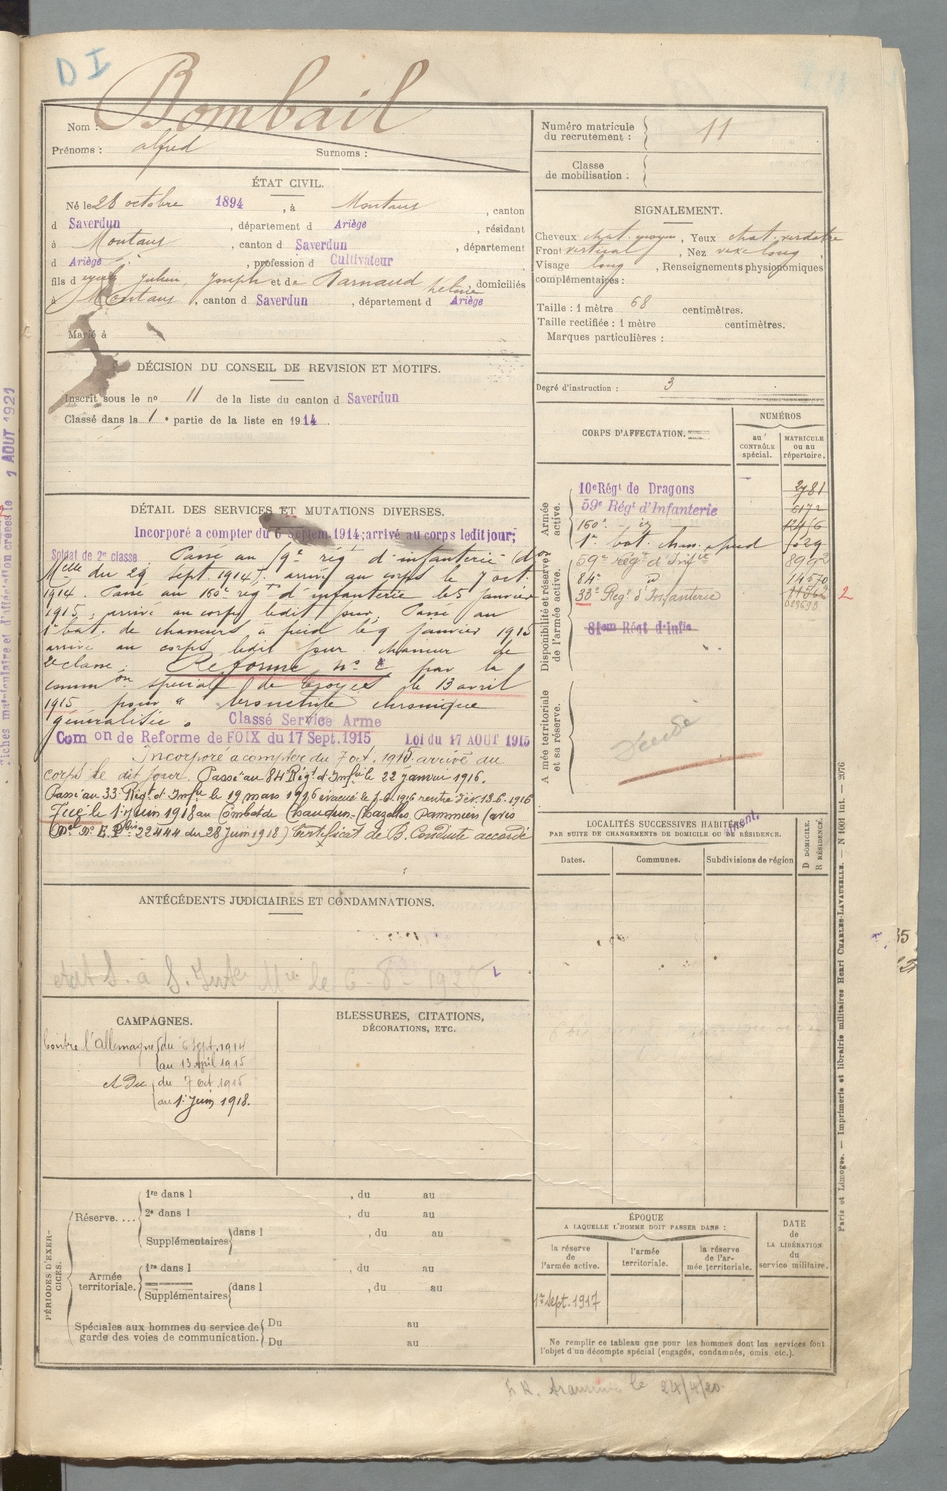 D I
Bombail
Nom :
Prénoms : alfred Surnoms :
Numéro matricule
du recrutement : 11
Classe
de mobilisation :
ÉTAT CIVIL.
Né le 28 octobre 1894, à Montaus, canton
d Saverdun, département d Ariège, résidant
à Montaus, canton d Saverdun, département
d Ariège, profession d Cultivateur
fils d Julien, Joseph et de Narnaud domiciliés
à Montaus, canton d Saverdun, département d Ariège
Marié à
SIGNALEMENT.
Cheveux chat. moyen, Yeux chat. verdatre
Front vertical, Nez long,
Visage long, Renseignements physionomiques
complémentaires :
Taille : 1 mètre 68 centimètres.
Taille rectifiée : 1 mètre centimètres.
Marques particulières :
Degré d'instruction : 3
DÉCISION DU CONSEIL DE REVISION ET MOTIFS.
Inscrit sous le no 11 de la liste du canton d Saverdun
Classé dans la 1e partie de la liste en 1914.
DÉTAIL DES SERVICES ET MUTATIONS DIVERSES.
Incorporé a compter du 6 Septem. 1914; arrivé au corps ledit jour;
Soldat de 2e classe Passé au 9e rég d'infanterie (d on
Melle du 29 sept. 1914). arrivé au corps le 7 oct.
1914. Passé au 160e reg d'infanterie le 5 janvier
1915; arrivé au corps ledit jour. Passé au
1er bat. de chasseurs à pied le 9 janvier 1915
arrivé au corps ledit jour chasseur de
2e classe. Reformé no 2 par la
comm on spéciale de Troyes le 13 avril
1915 pour " bronchite chronique
généralisée " Classé Service Arme
Com on de Reforme de FOIX du 17 Sept. 1915 Loi du 17 AOUT 1915
Incorporé à compter du 7 oct. 1915 arrivé au
corps le dit jour. Passé au 84 Régt d'Infie le 22 janvier 1916.
Passé au 33 Régt d'Infie le 19 mars 1916 évacué le rentré 13.6.1916
Tué le 1er Juin 1918 au Combat de Chaudun (avis
22444 du 28 Juin 1918) Certificat de B. Conduite accordé
CORPS D'AFFECTATION.
NUMÉROS
au
CONTRÔLE
spécial.
MATRICULE
ou au
répertoire.
Armée
active.
10e Régt de Dragons 2781
59e Régt d'Infanterie 6172
160e
1er bat. chas. a pied
Disponibilité et réserve
de l'armée active.
59e Régt d'Infie
84e
33e Régt d'Infanterie
81em Régt d'Infie
2
Armée territoriale
et sa réserve.
LOCALITÉS SUCCESSIVES HABITÉES
PAR SUITE DE CHANGEMENTS DE DOMICILE OU DE RÉSIDENCE.
Dates.
Communes.
Subdivisions de région
D DOMICILE.
R RÉSIDENCE.
ANTÉCÉDENTS JUDICIAIRES ET CONDAMNATIONS.
CAMPAGNES.
Contre l'Allemagne du 6 Sept. 1914
au 13 April 1915
et du du 7 oct 1915
au 1er Juin 1918.
BLESSURES, CITATIONS,
DÉCORATIONS, ETC.
PÉRIODES D'EXER-
CICES.
Réserve....
1re dans l , du au
2e dans l , du au
Supplémentaires dans l , du au
Armée
territoriale.
1re dans l , du au
Supplémentaires dans l , du au
Spéciales aux hommes du service de
garde des voies de communication.
Du au
Du au
ÉPOQUE
A LAQUELLE L'HOMME DOIT PASSER DANS :
la réserve
de
l'armée active.
l'armée
territoriale.
la réserve
de l'ar-
mée territoriale.
DATE
de
LA LIBÉRATION
du
service militaire.
1er Sept. 1917
Ne remplir ce tableau que pour les hommes dont les services font
l'objet d'un décompte spécial (engagés, condamnés, omis, etc.).
le 24/4/20
Paris et Limoges. — Imprimerie et librairie militaires Henri CHARLES-LAVAUZELLE. — N 1001 Int. — 2076
Fiches matriculaire et d'affectation créées le 1 AOUT 1921